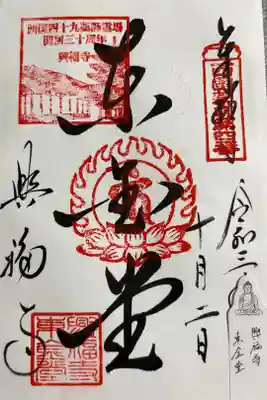 奉拝
令和三
十月二日
東金堂
興福寺
西国四十九薬師霊場
開創三十周年
興福寺
興福寺
東金堂
興福寺
東金堂